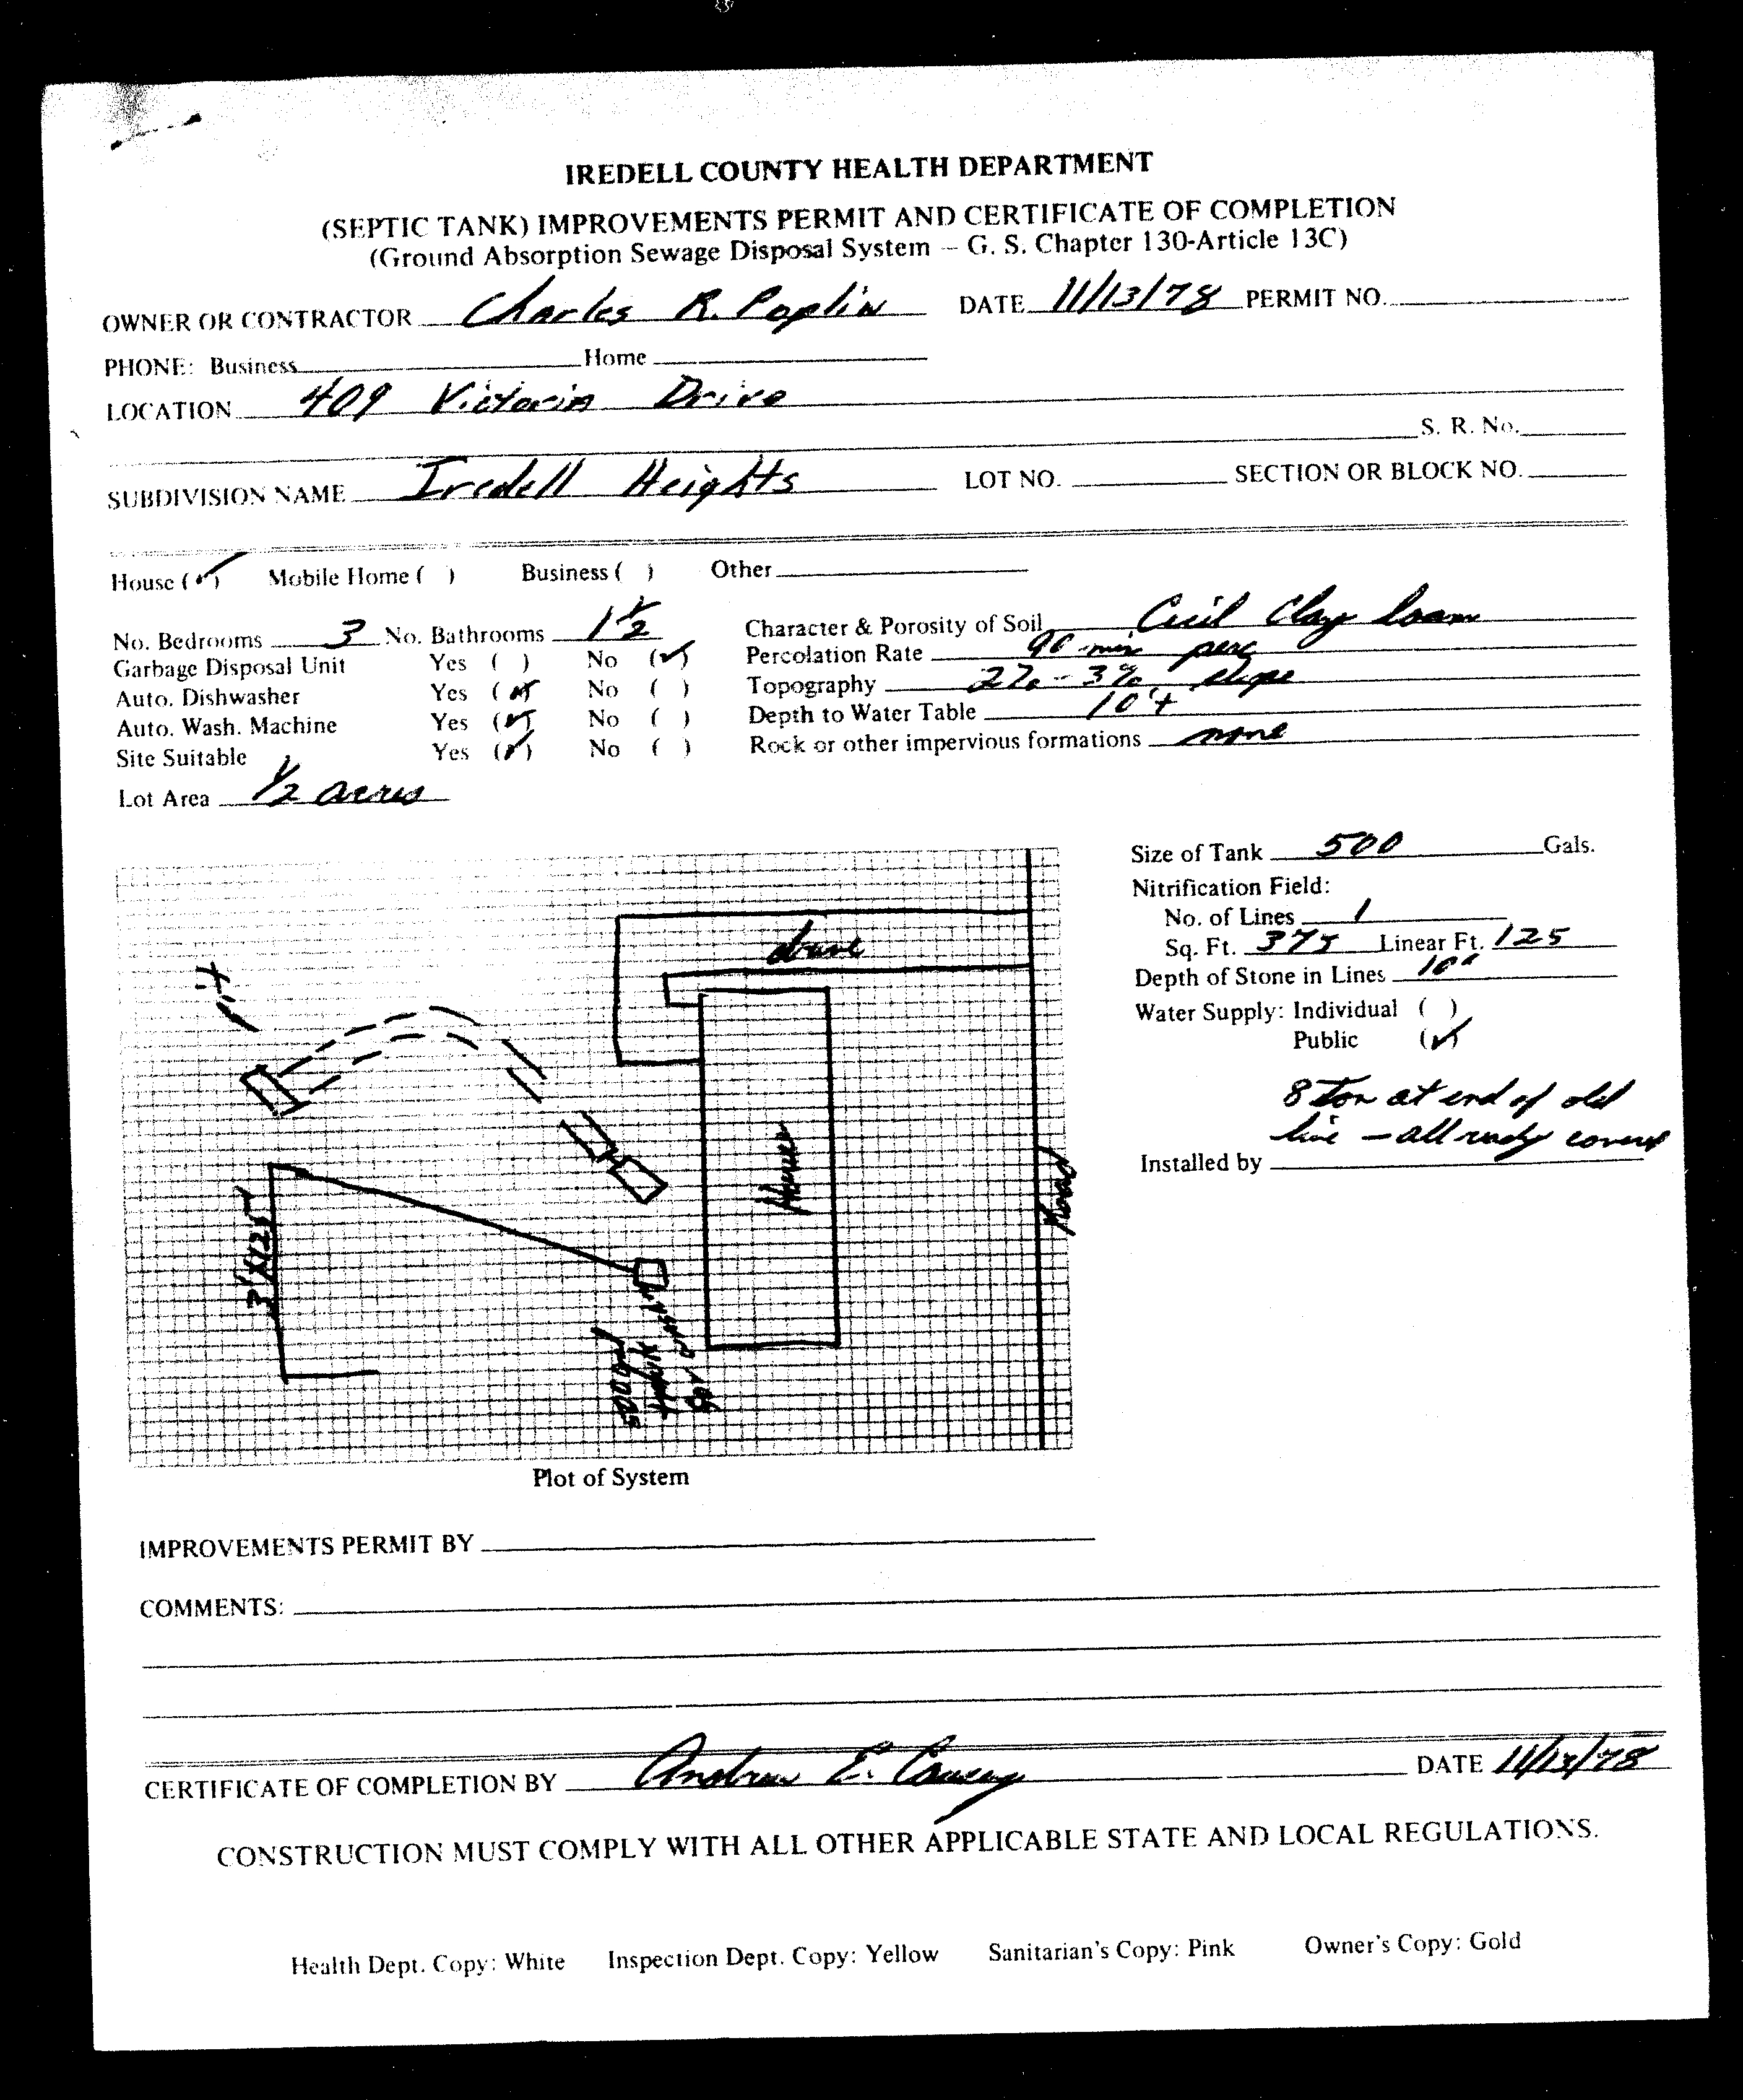 IREDELL COUNTY HEALTH DEPARTMENT
(SEPTIC TANK) IMPROVEMENTS PERMIT AND CERTIFICATE OF COMPLETION
(Ground Absorption Sewage Disposal System – G. S. Chapter 130-Article 13C)
OWNER OR CONTRACTOR Charles R. Poplin DATE 11/13/78 PERMIT NO.
PHONE: Business Home
LOCATION 409 Victoria Drive
S. R. No.
SUBDIVISION NAME Iredell Heights LOT NO. SECTION OR BLOCK NO.
House (✓) Mobile Home ( ) Business ( ) Other
No. Bedrooms 3 No. Bathrooms 1 1/2
Garbage Disposal Unit Yes ( ) No (✓)
Auto. Dishwasher Yes (✓) No ( )
Auto. Wash. Machine Yes (✓) No ( )
Site Suitable Yes (✓) No ( )
Lot Area 1/2 acres
Character & Porosity of Soil Cecil Clay loam
Percolation Rate 90 min perc
Topography 2% - 3% slope
Depth to Water Table 10'+
Rock or other impervious formations none
Size of Tank 500 Gals.
Nitrification Field:
No. of Lines 1
Sq. Ft. 375 Linear Ft. 125
Depth of Stone in Lines 10"
Water Supply: Individual ( )
Public (✓)
8 Ton at end of old
line - all ready covered
Installed by
drive
House
Road
3'X125'
500 gal
Plot of System
IMPROVEMENTS PERMIT BY
COMMENTS:
CERTIFICATE OF COMPLETION BY Andrew E. DATE 11/13/78
CONSTRUCTION MUST COMPLY WITH ALL OTHER APPLICABLE STATE AND LOCAL REGULATIONS.
Health Dept. Copy: White Inspection Dept. Copy: Yellow Sanitarian's Copy: Pink Owner's Copy: Gold